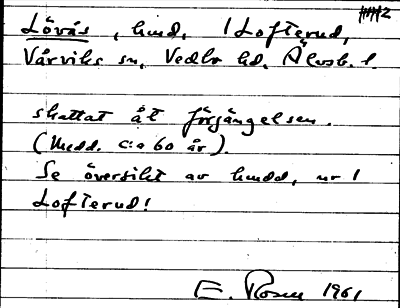 Lövås, hmd, 1 Lofterud,
Vårviks sn, Vedbo hd. Älvsb. l.
skattat åt förgängelsen.
(Medd. c:a 60 år).
Se översikt av hmdd, nr 1
Lofterud!
E. Rosen 1961